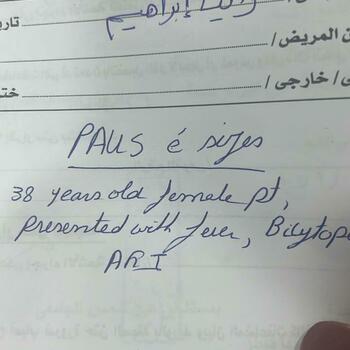 إبراهيم
تاري
ن المريض /
ى / خارجى /
خت
PAUS é sizes
38 years old female pt,
presented with fever, Bicytope
ARI